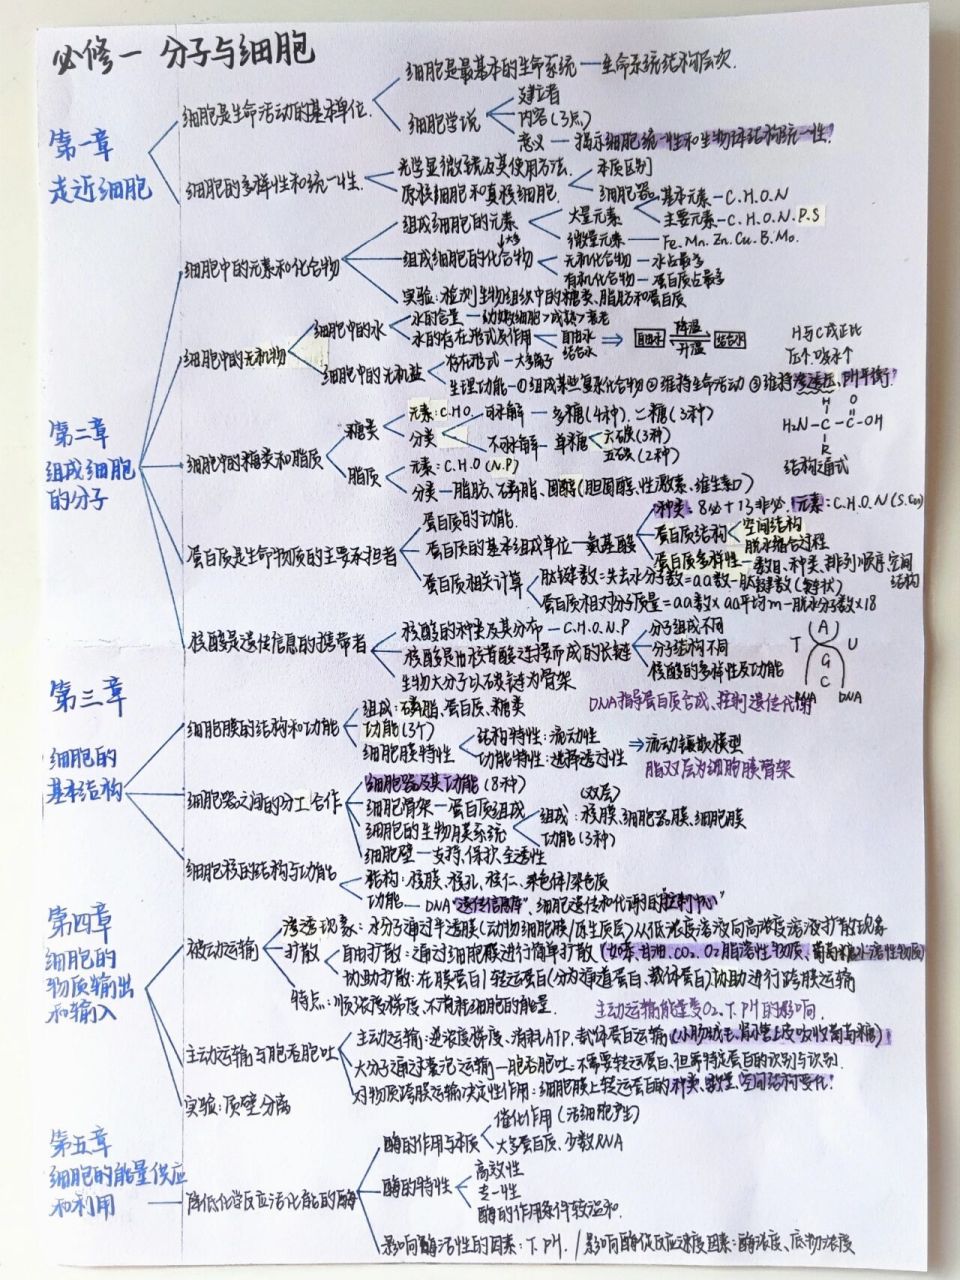 必修一 分子与细胞
第一章
走近细胞
细胞是生命活动的基本单位.
细胞是最基本的生命系统—生命系统结构层次.
细胞学说
建立者
内容(3点)
意义—揭示细胞统一性和生物体结构统一性.
细胞的多样性和统一性.
光学显微镜及其使用方法.
原核细胞和真核细胞.
本质区别
细胞器
第二章
组成细胞
的分子
细胞中的元素和化合物
组成细胞的元素
大量元素
基本元素—C.H.O.N
主要元素—C.H.O.N.P.S
微量元素—Fe.Mn.Zn.Cu.B.Mo.
组成细胞的化合物
无机化合物—水占最多
有机化合物—蛋白质占最多
实验:检测生物组织中的糖类、脂肪和蛋白质
细胞中的无机物
细胞中的水
水的含量—幼嫩细胞>成熟>衰老
水的存在形式及作用
自由水
结合水
⇒ 自由水 降温 升温 结合水
H与C成正比
细胞中的无机盐
存在形式—大多离子
生理功能—①组成某些复杂化合物②维持生命活动③维持渗透压、PH平衡.
细胞中的糖类和脂质
糖类
元素:C.H.O.
分类
可水解—多糖(4种).二糖(3种)
不可水解—单糖
六碳(3种)
五碳(2种)
脂质
元素:C.H.O(N.P)
分类—脂肪、磷脂、固醇(胆固醇、性激素、维生素D)
H O
H₂N—C—C—OH
R
结构通式
蛋白质是生命物质的主要承担者
蛋白质的功能.
蛋白质的基本组成单位—氨基酸
种类:8必+13非必.元素:C.H.O.N
蛋白质结构
空间结构
脱水缩合过程
蛋白质多样性—数目、种类、排列顺序、空间结构
蛋白质相关计算
肽键数=失去水分子数=aa数-肽链数(链状)
蛋白质相对分子质量=aa数×aa平均m-脱水分子数×18
核酸是遗传信息的携带者
核酸的种类及其分布—C.H.O.N.P
核酸是由核苷酸连接而成的长链
分子组成不同
分子结构不同
核酸的多样性及功能
生物大分子以碳链为骨架
T A U
G
C
RNA DNA
DNA指导蛋白质合成、控制遗传代谢
第三章
细胞的
基本结构
细胞膜的结构和功能
组成:磷脂、蛋白质、糖类
功能(3个)
细胞膜特性
结构特性:流动性
功能特性:选择透过性
⇒流动镶嵌模型
脂双层为细胞膜骨架
细胞器之间的分工合作
细胞器及其功能(8种)
细胞骨架—蛋白质组成
细胞的生物膜系统
(双层)
组成:核膜、细胞器膜、细胞膜
功能(3种)
细胞壁—支持、保护、全透性
细胞核的结构与功能
结构:核膜、核孔、核仁、染色体/染色质
功能—DNA"遗传信息库"、细胞遗传和代谢的"控制中心"
第四章
细胞的
物质输出
和输入
被动运输
渗透现象:水分子通过半透膜(动物细胞膜/原生质层)从低浓度溶液向高浓度溶液扩散现象
扩散
自由扩散:通过细胞膜进行简单扩散(如苯.甘油.CO₂.O₂脂溶性物质、葡萄糖水溶性物质)
协助扩散:在膜蛋白/转运蛋白(分为通道蛋白、载体蛋白)协助进行跨膜运输
特点:顺浓度梯度、不消耗细胞的能量.
主动运输能量受O₂、T、PH的影响.
主动运输与胞吞胞吐
主动运输:逆浓度梯度、消耗ATP、载体蛋白运输(小肠绒毛、肾小管上皮吸收葡萄糖)
大分子通过囊泡运输—胞吞胞吐:不需要转运蛋白、但需特定蛋白的识别与识别.
对物质跨膜运输决定性作用:细胞膜上转运蛋白的种类、数量、空间结构变化.
实验:质壁分离
第五章
细胞的能量供应
和利用
降低化学反应活化能的酶
酶的作用与本质
催化作用(活细胞产生)
大多蛋白质、少数RNA
酶的特性
高效性
专一性
酶的作用条件较温和.
影响酶活性的因素:T、PH. / 影响酶促反应速度因素:酶浓度、底物浓度